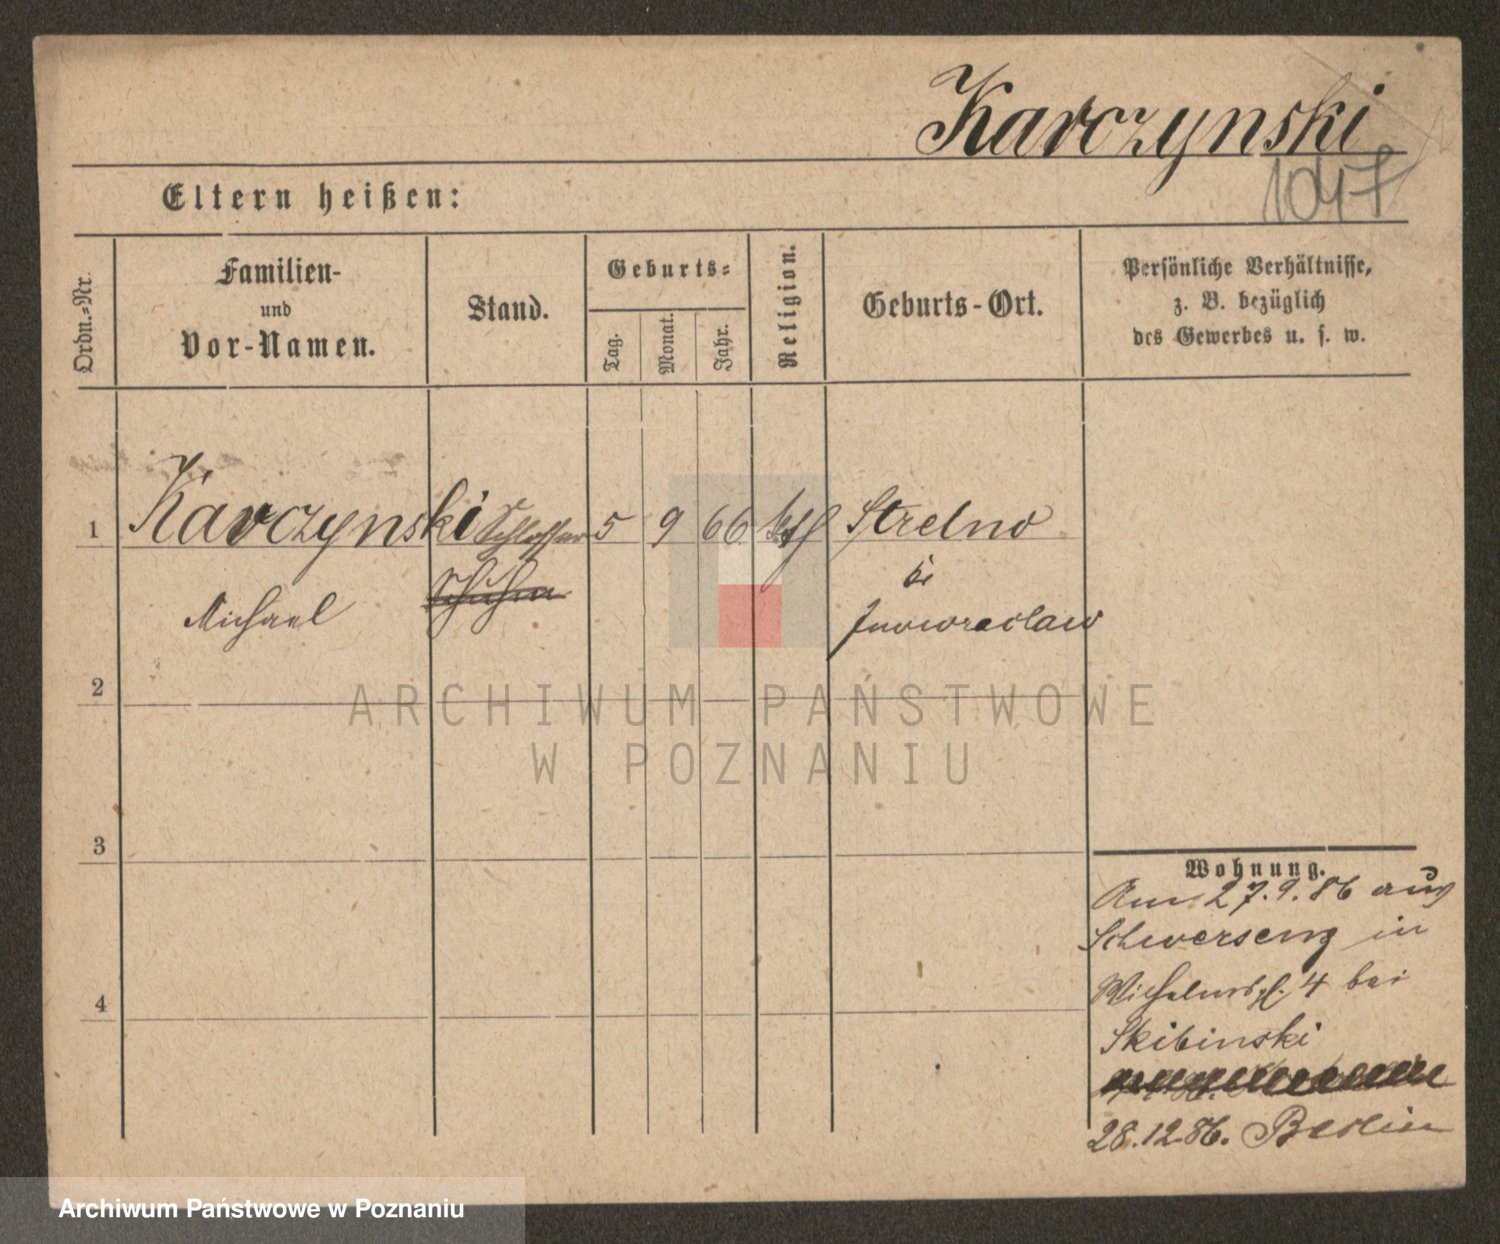 Karczynski
1047
Eltern heißen:
Ordn.-Nr.
Familien-
und
Vor-Namen.
Stand.
Geburts-
Tag.
Monat.
Jahr.
Religion.
Geburts-Ort.
Persönliche Verhältnisse,
z. B. bezüglich
des Gewerbes u. s. w.
1 Karczynski Schlosser 5 9 66 kth Strelno
Michael
Inowraclaw
2
ARCHIWUM PAŃSTWOWE
W POZNANIU
3
Wohnung.
Am 27.9.86 aus
Schwersenz in
Wilhelmspl. 4 bei
Skibinski
4
28.12.86. Berlin
Archiwum Państwowe w Poznaniu